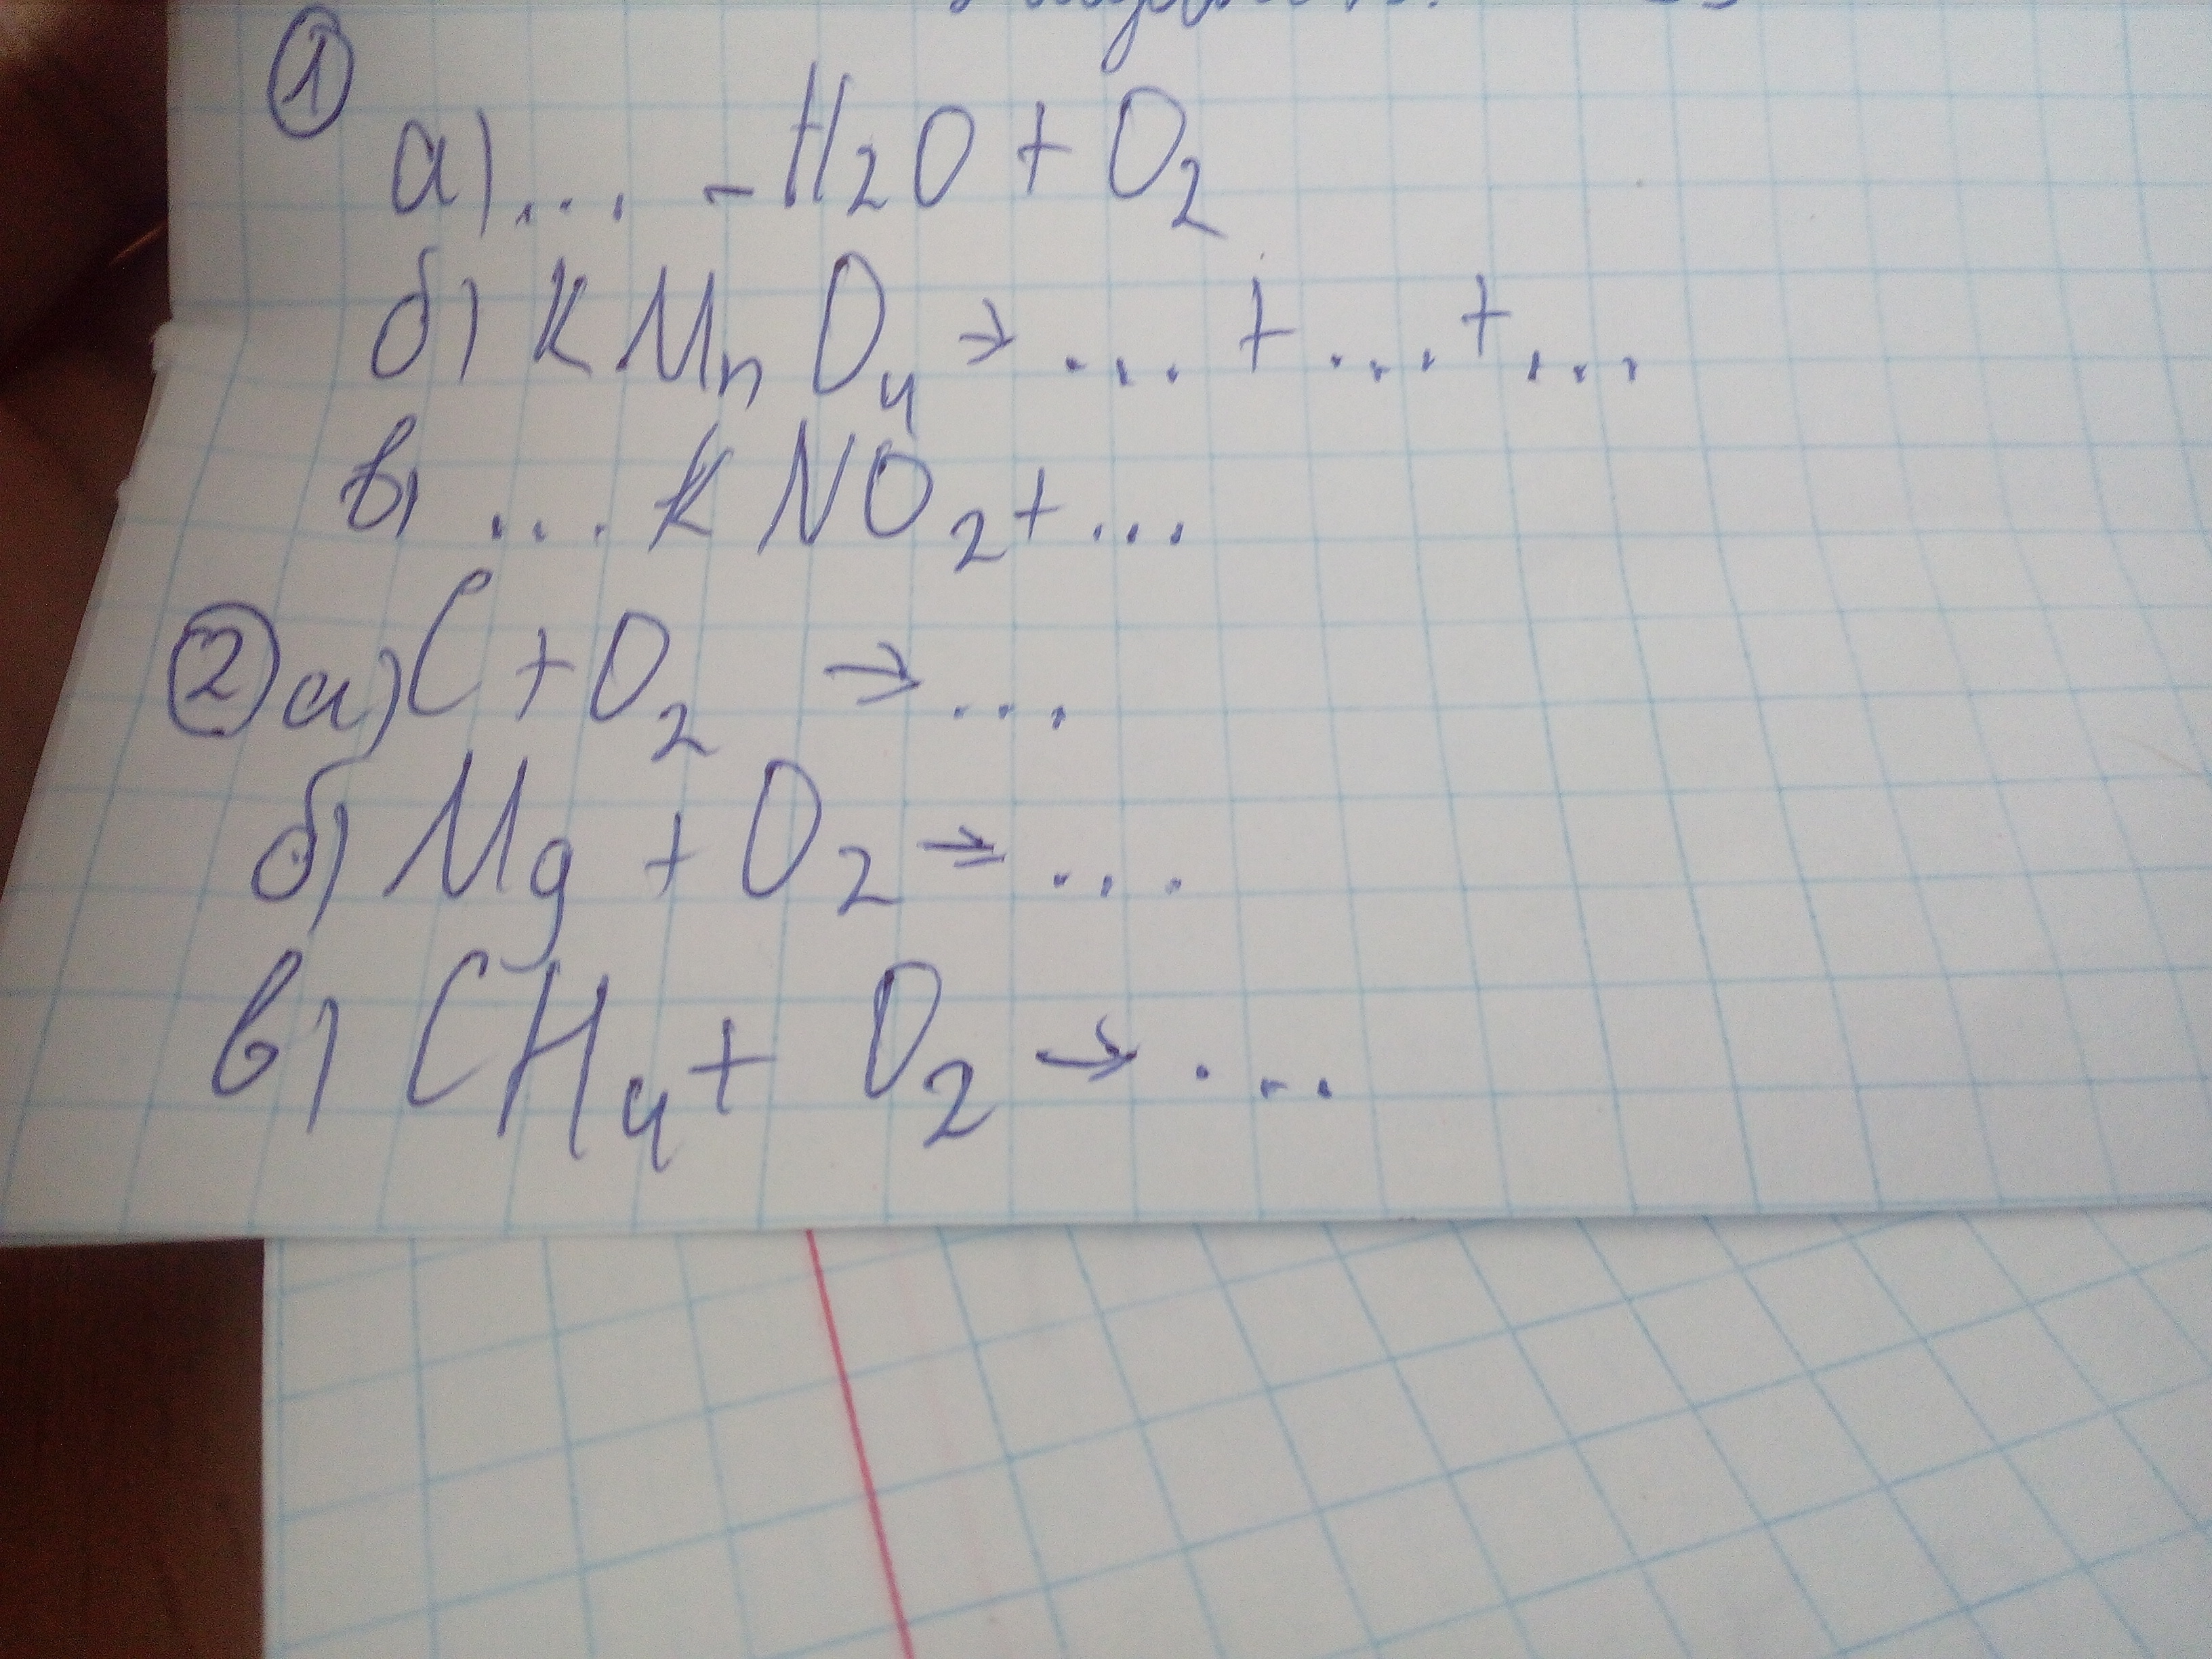 ①
а) ... - H₂O + O₂
б) KMnO₄ → ... + ... + ...
в) ... KNO₂ + ...
② а) C + O₂ → ...
б) Mg + O₂ → ...
в) CH₄ + O₂ → ...